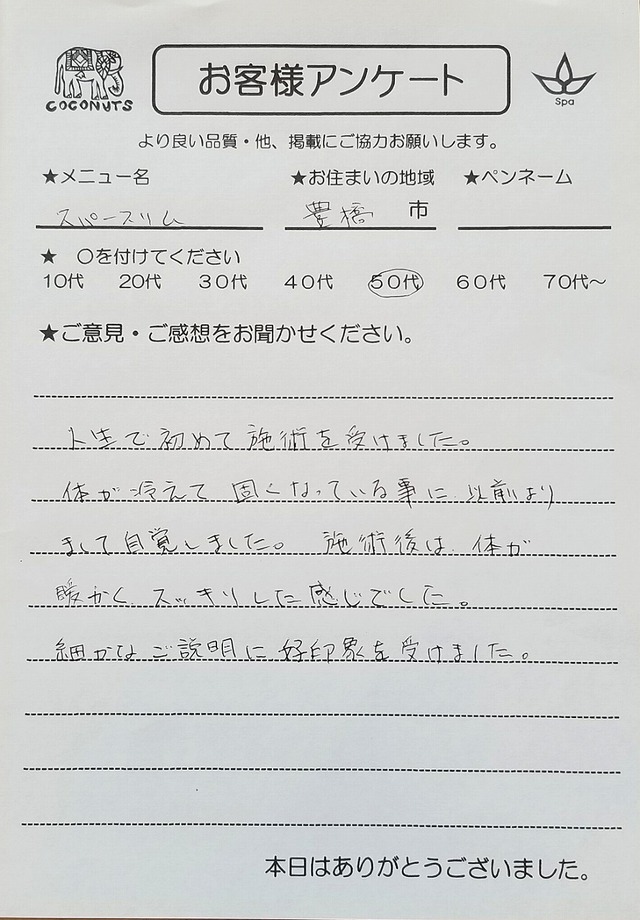 COCONUTS
お客様アンケート
Spa
より良い品質・他、掲載にご協力お願いします。
★メニュー名 ★お住まいの地域 ★ペンネーム
スパースリム 豊橋 市
★ 〇を付けてください
10代 20代 30代 40代 50代 60代 70代～
★ご意見・ご感想をお聞かせください。
人生で初めて施術を受けました。
体が冷えて固くなっている事に、以前より
まして自覚しました。 施術後は、体が
暖かく、スッキリした感じでした。
細かなご説明に好印象を受けました。
本日はありがとうございました。